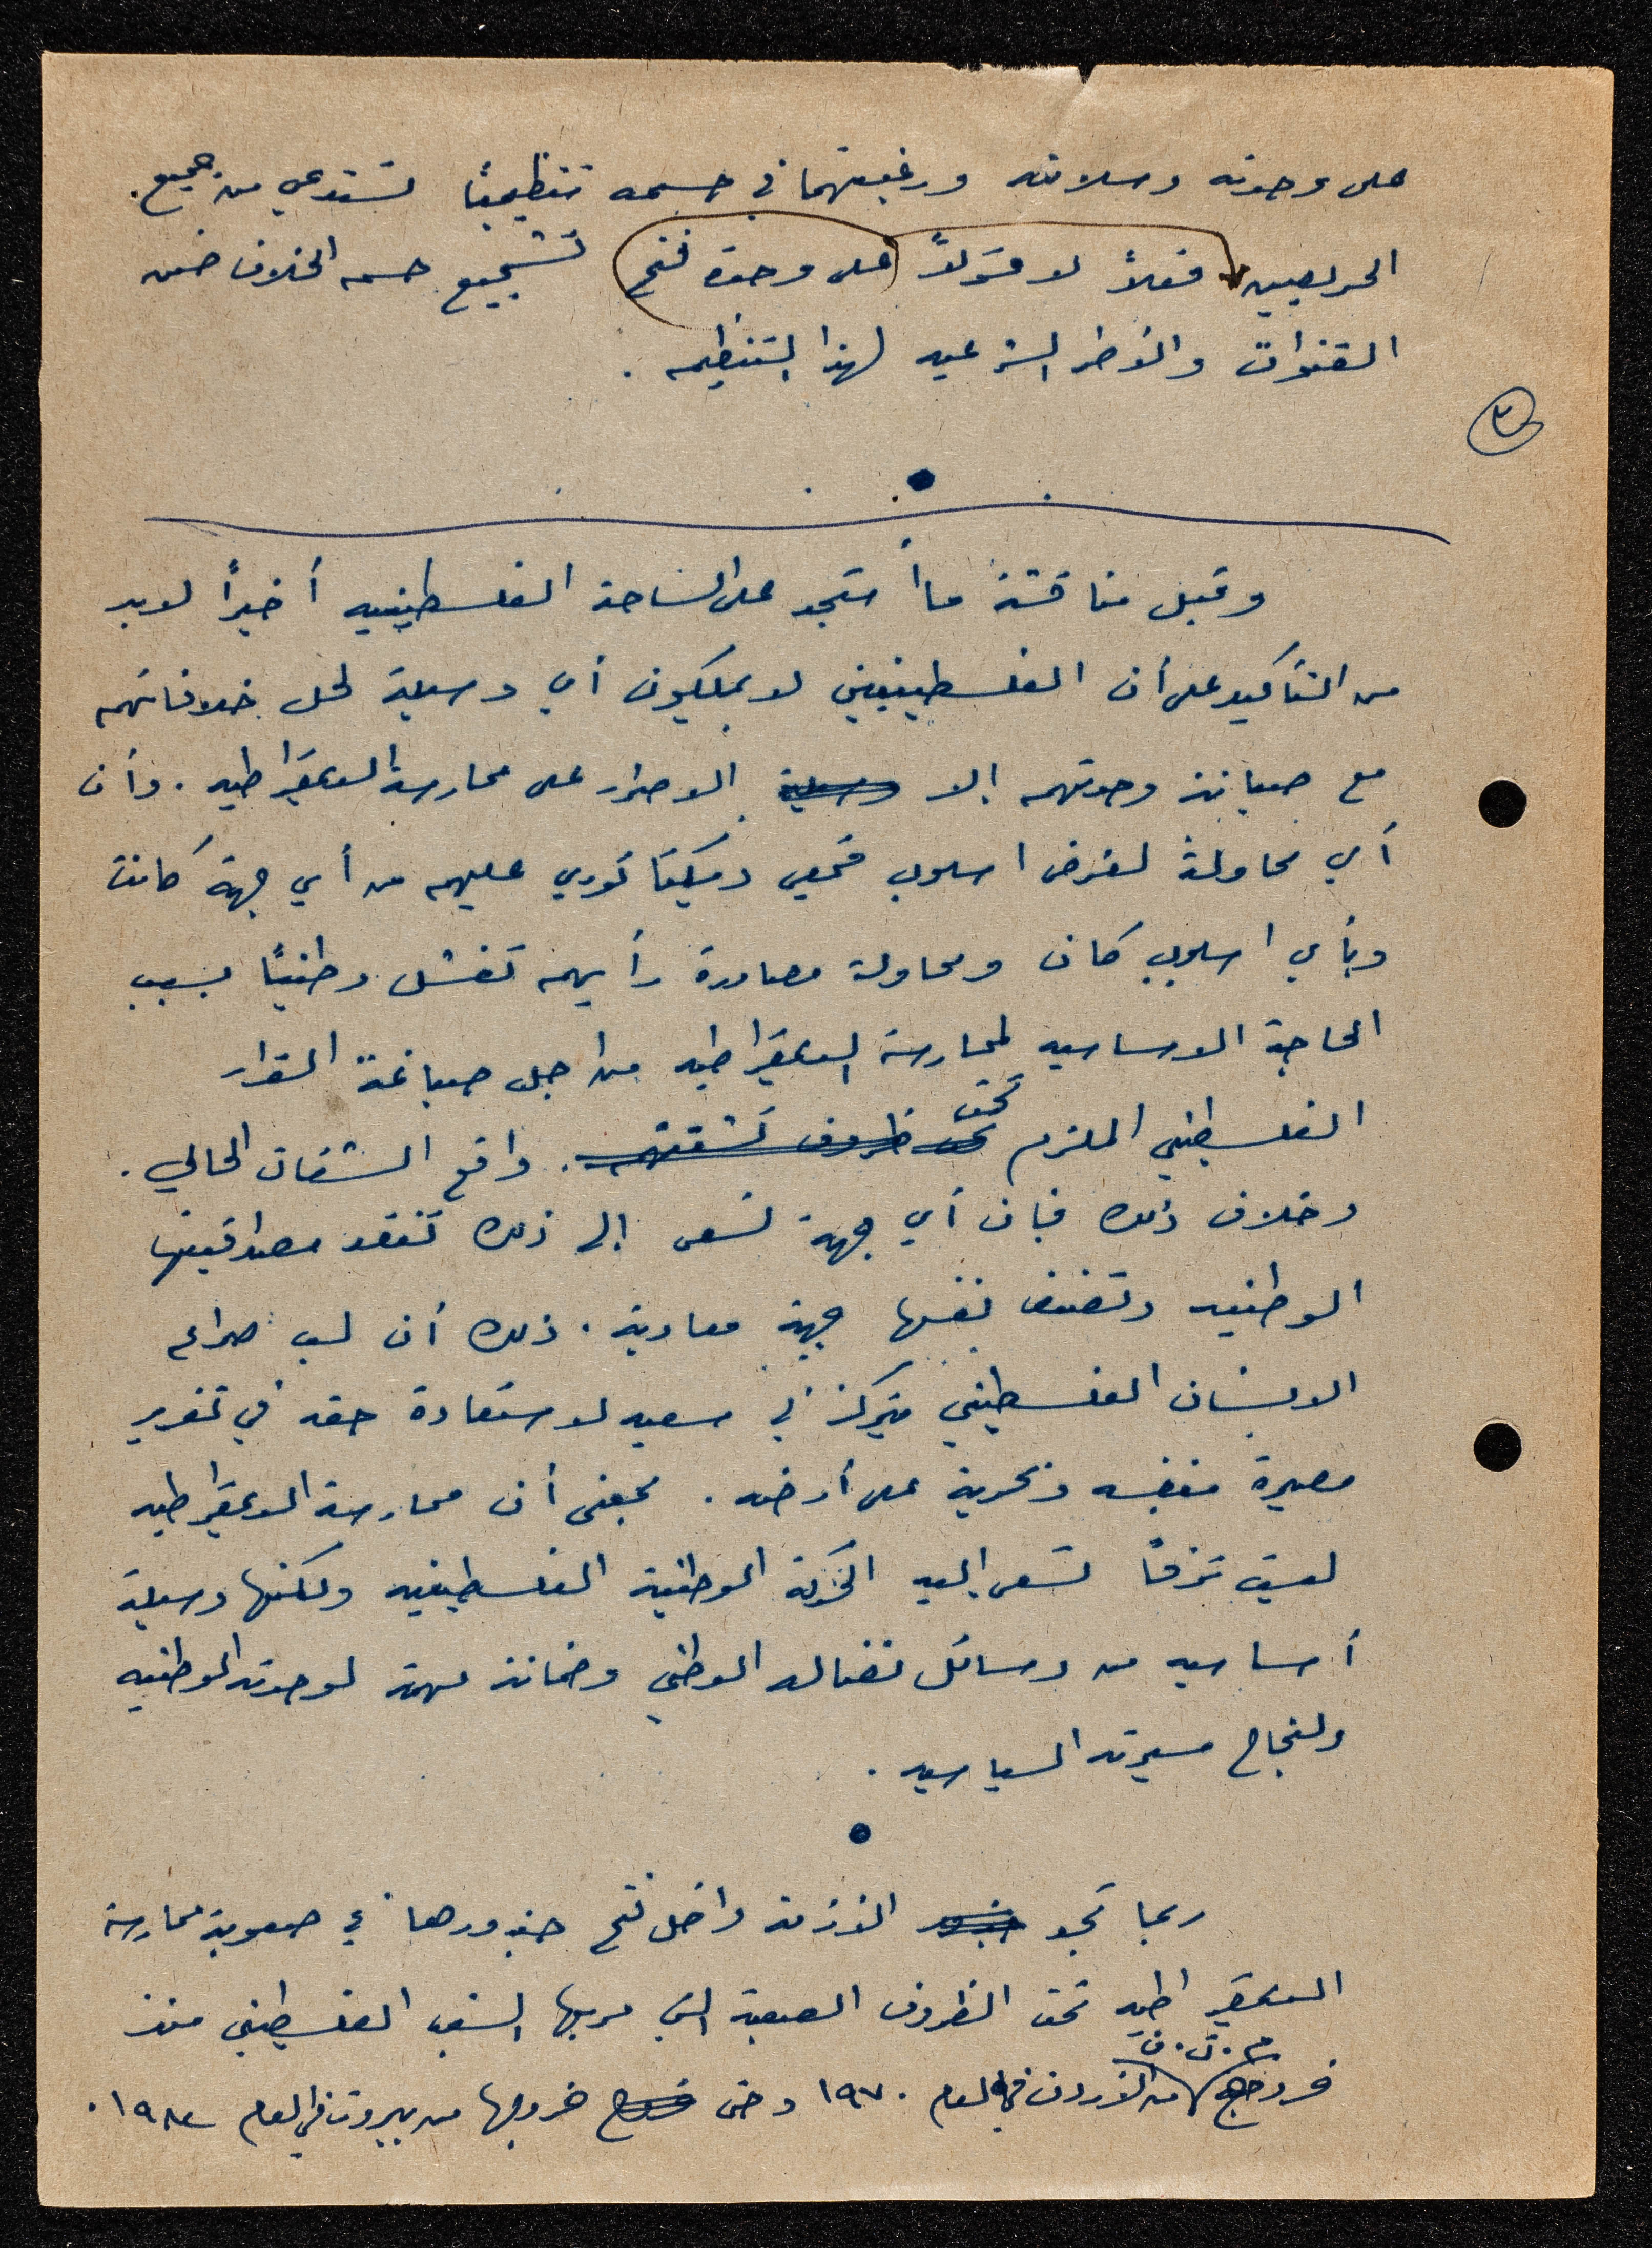 على وحدته وسلامته ورغبتهما في حسمه تنظيميًا تستدعي من جميع
الحريصين فعلاً لا قولاً (على وحدة فتح) تشجيع حسم الخلاف ضمن
القنوات والأطر الشرعيه لهذا التنظيم .
٣
وقبل مناقشة ما أستجد على الساحة الفلسطينيه أخيراً لابد
من التأكيد على أن الفلسطينيين لا يملكون أي وسيلة لحل خلافاتهم
مع صيانة وحدتهم إلا وسيلة الاصرار على ممارسة الديمقراطيه . وأن
أي محاولة لفرض اسلوب قمعي ديكتاتوري عليهم من أي جهة كانت
وبأي اسلوب كان ومحاولة مصادرة رأيهم تفشل وطنيًا بسبب
الحاجة الاساسيه لممارسة الديمقراطيه من اجل صياغة القرار
الفلسطيني الملزم تحت ظروف تشتتهم . تحت واقع الشتات الحالي .
وخلاف ذلك فبان أي جهة تسعى الى ذلك تفقد مصداقيتها
الوطنيه وتصنف نفسها جهة معادية . ذلك أن لب صراع
الانسان الفلسطيني يتركز في سعيه لاستعادة حقه في تقرير
مصيرة بنفسه وبحرية على أرضه . بمعنى أن ممارسة الديمقراطيه
ليست ترفًا تسعى إليه الحركة الوطنية الفلسطينيه ولكنها وسيلة
أساسيه من وسائل نضاله الوطني وضمانة مهمة لوحدته الوطنيه
ولنجاح مسيرته السياسيه .
ربما تجد الأزمة داخل فتح جذورها في صعوبة ممارسة
الديمقراطيه تحت الظروف الصعبة التي مر بها الشعب الفلسطيني منذ
خروج م.ت.ف من الأردن في العام ١٩٧٠ وحتى خروجها من بيروت في العام ١٩٨٢ .